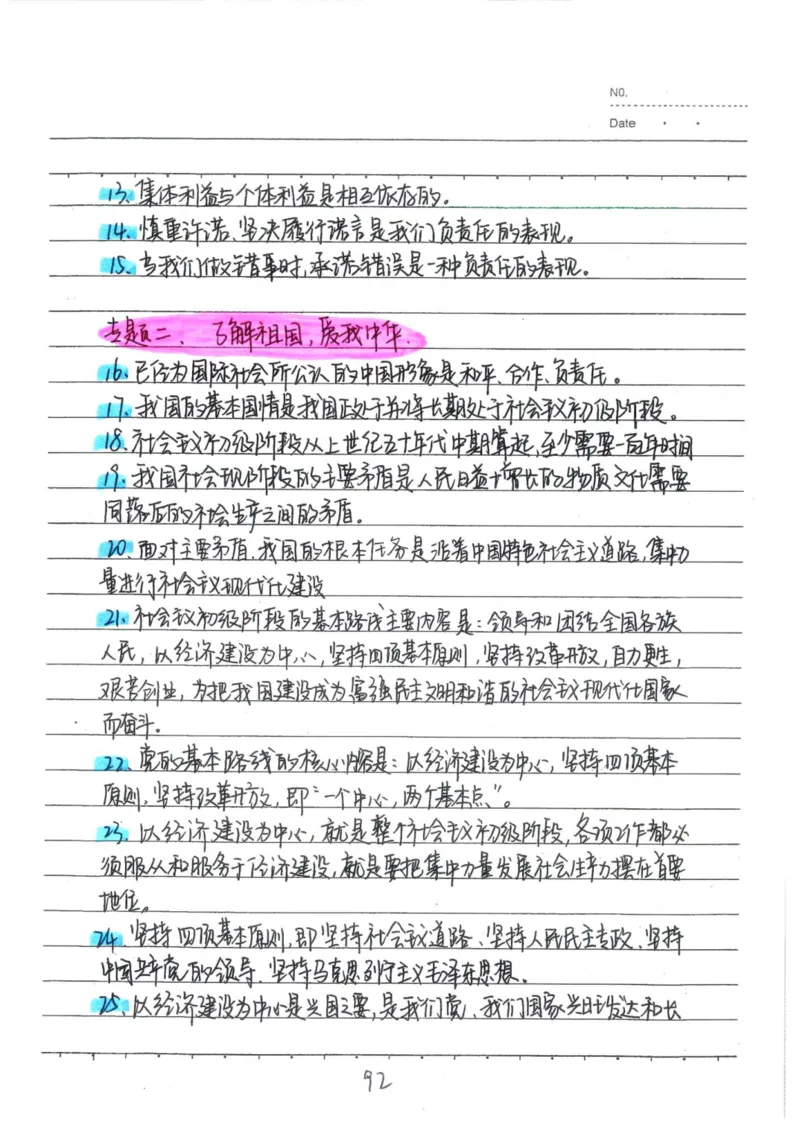 NO.
Date
13、集体利益与个体利益是相互依存的。
14、慎重许诺、坚决履行诺言是我们负责任的表现。
15、当我们做错事时,承诺错误是一种负责任的表现。
专题二、了解祖国,爱我中华.
16、已经为国际社会所公认的中国形象是和平、合作、负责任。
17、我国的基本国情是我国正处于并将长期处于社会主义初级阶段。
18、社会主义初级阶段从上世纪五十年代中期算起,至少需要一百年时间
19、我国社会现阶段的主要矛盾是人民日益增长的物质文化需要
同落后的社会生产之间的矛盾。
20、面对主要矛盾,我国的根本任务是沿着中国特色社会主义道路,集中力
量进行社会主义现代化建设
21、社会主义初级阶段的基本路线主要内容是:领导和团结全国各族
人民,以经济建设为中心,坚持四项基本原则,坚持改革开放,自力更生,
艰苦创业,为把我国建设成为富强民主文明和谐的社会主义现代化国家
而奋斗。
22、党的基本路线的核心内容是:以经济建设为中心,坚持四项基本
原则,坚持改革开放,即“一个中心,两个基本点”。
23、以经济建设为中心,就是整个社会主义初级阶段,各项工作都必
须服从和服务于经济建设,就是要把集中力量发展社会生产力摆在首要
地位。
24、坚持四项基本原则,即坚持社会主义道路、坚持人民民主专政、坚持
中国共产党的领导、坚持马克思列宁主义毛泽东思想。
25、以经济建设为中心是兴国之要,是我们党、我们国家兴旺发达和长
92